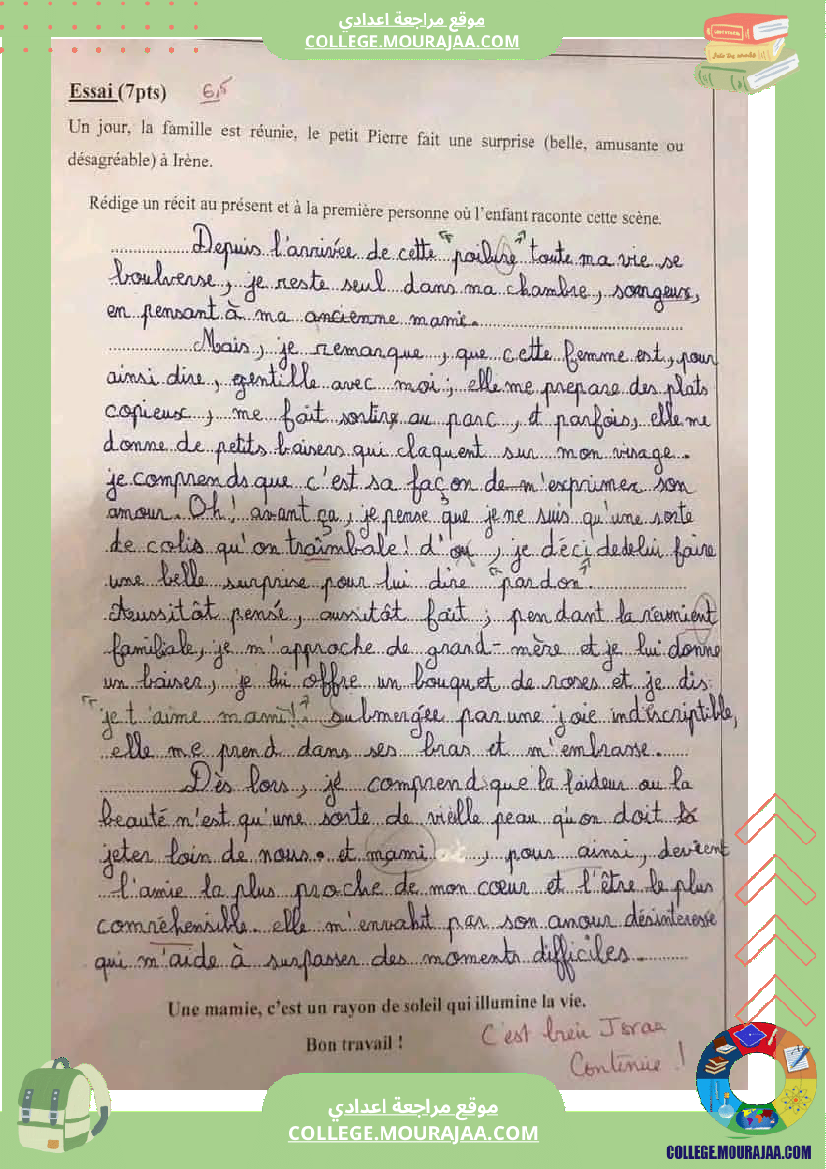 موقع مراجعة اعدادي
COLLEGE.MOURAJAA.COM
Essai (7pts) 6,5
Un jour, la famille est réunie, le petit Pierre fait une surprise (belle, amusante ou
désagréable) à Irène.
Rédige un récit au présent et à la première personne où l'enfant raconte cette scène.
Depuis l'arrivée de cette "poiluse" toute ma vie se
boulverse, je reste seul dans ma chambre, songeux,
en pensant à ma ancienne mamie.
Mais, je remarque, que cette femme est, pour
ainsi dire, gentille avec moi ; elle me prepare des plats
copieux, me fait sortire au parc, et parfois, elle me
donne de petits baisers qui claquent sur mon visage.
je comprends que c'est sa façon de m'exprimer son
amour. Oh! avant ça, je pense que je ne suis qu'une sorte
de colis qu'on traîmbale! d'où, je décide de lui faire
une belle surprise pour lui dire "pardon"
Aussitât pensé, aussitât fait ; pendant la reunient
familiale, je m'approche de grand-mère et je lui donne
un baiser, je lui offre un bouquet de roses et je dis:
"je t'aime mami!". Submergée par une joie indiscriptible,
elle me prend dans ses bras et m'embrasse.
Dès lors, je comprend que la laideur ou la
beauté n'est qu'une sorte de vieille peau qu'on doit
jeter loin de nous. et mami, pour ainsi, devient
l'amie la plus proche de mon cœur et l'être le plus
comréhensible. elle m'envahit par son amour désinteressé
qui m'aide à surpasser des moments difficiles.
Une mamie, c'est un rayon de soleil qui illumine la vie.
Bon travail !
C'est bien Israa
Continue !
موقع مراجعة اعدادي
COLLEGE.MOURAJAA.COM
COLLEGE.MOURAJAA.COM